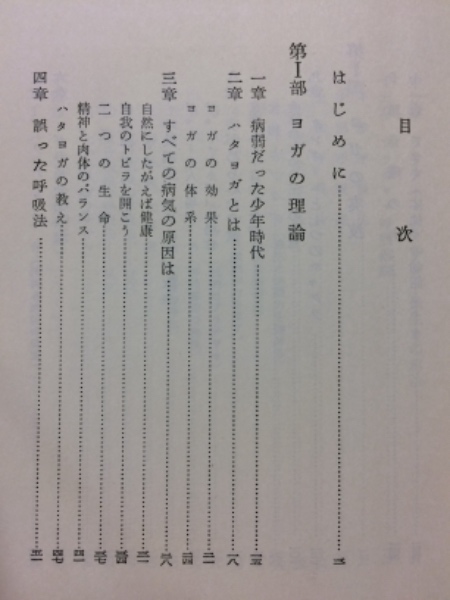 目次
はじめに……三
第Ⅰ部 ヨガの理論
一章 病弱だった少年時代……一五
二章 ハタヨガとは……一八
ヨガの効果……二一
ヨガの体系……二四
三章 すべての病気の原因は……二八
自然にしたがえば健康……三一
自我のトビラを開こう……三四
二つの生命……三七
精神と肉体のバランス……四一
ハタヨガの教え……四七
四章 誤った呼吸法